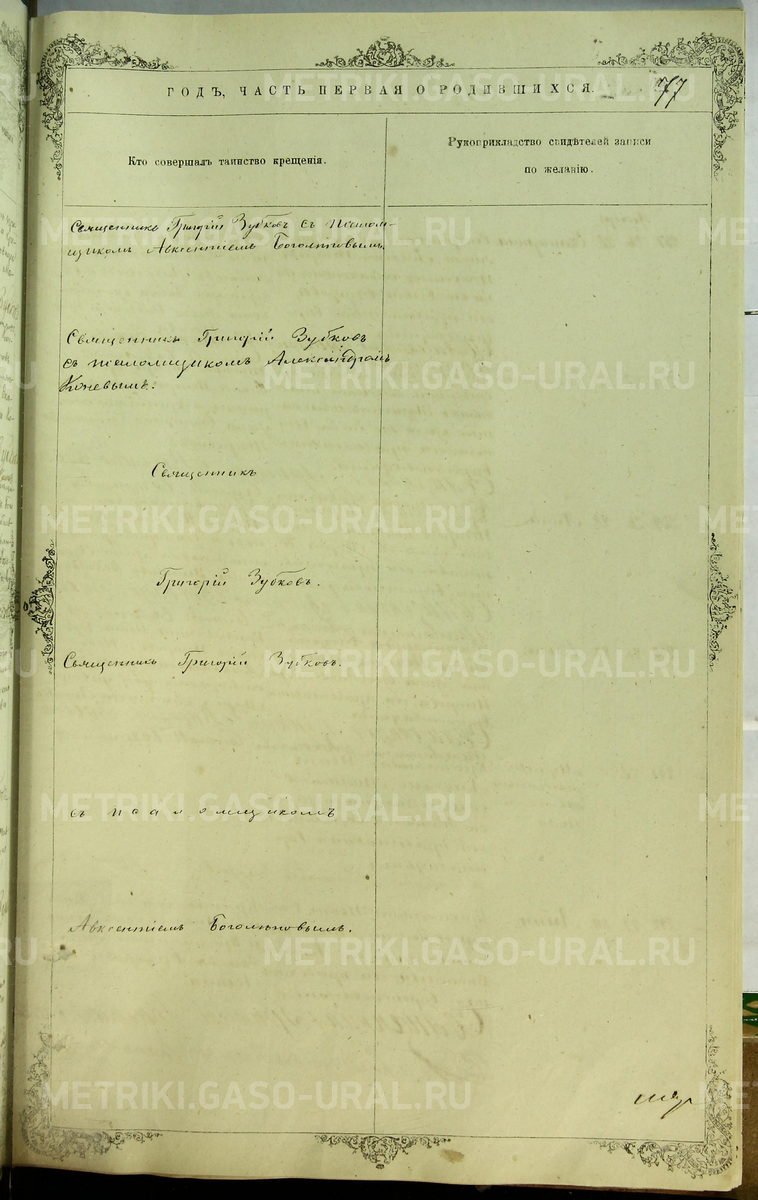 ГОДЪ, ЧАСТЬ ПЕРВАЯ О РОДИВШИХСЯ. 77
Кто совершалъ таинство крещенія.
Рукоприкладство свидѣтелей записи
по желанію.
Священникъ Григорій Зубковъ съ псалом-
щикомъ Авксентіемъ Боголѣповымъ.
Священникъ Григорій Зубковъ
съ псаломщикомъ Александромъ
Коневымъ.
Священникъ
Григорій Зубковъ.
Священникъ Григорій Зубковъ.
съ псаломщикомъ
Авксентіемъ Боголѣповымъ.
METRIKI.GASO-URAL.RU